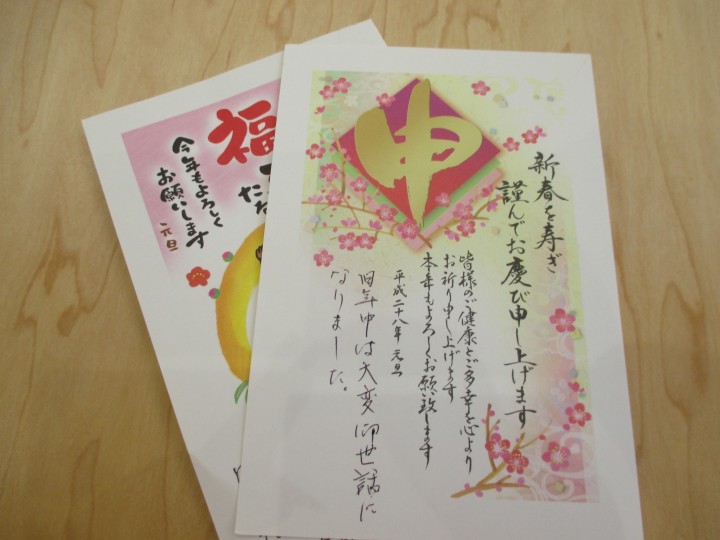 申
新春を寿ぎ
謹んでお慶び申し上げます
皆様のご健康とご多幸を心より
お祈り申し上げます
本年もよろしくお願い致します
平成二十八年 元旦
旧年中は大変御世話に
なりました。
福
今年もよろしく
お願いします
元旦